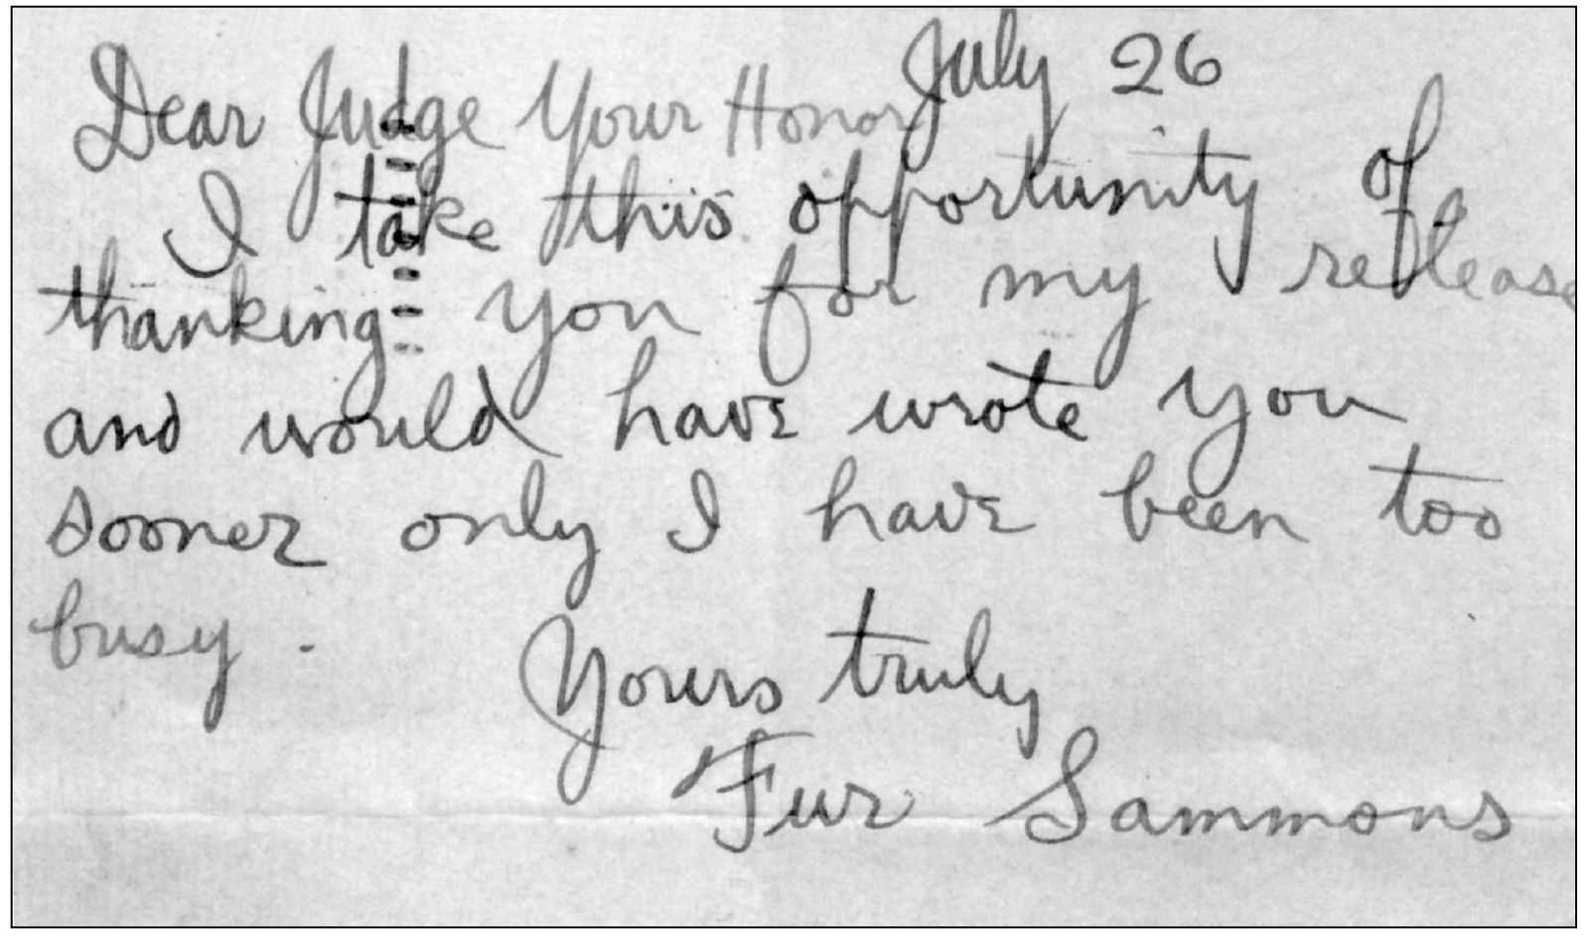 July 26
Dear Judge Your Honor
I take this opportunity of
thanking you for my release
and would have wrote you
sooner only I have been too
busy.
Yours truly
Fur Sammons